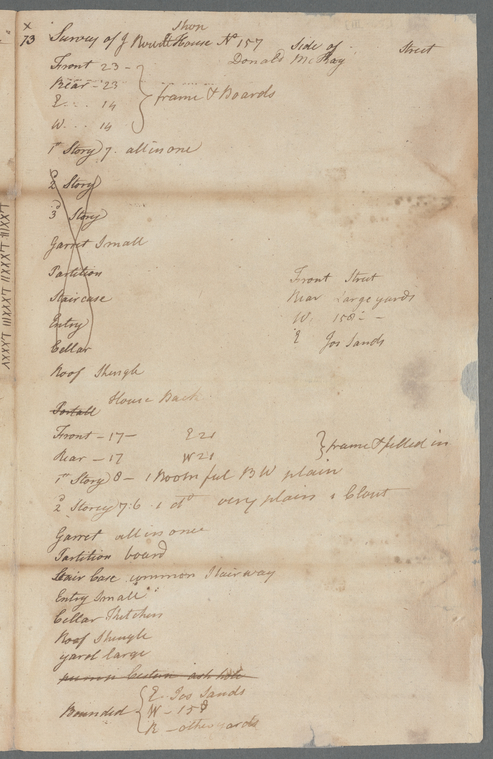 x
73 Survey of J House No 157 Side of Street
Shop
Donald McKay
Front 23 -
Rear - 23
E . . . 14
W . . . 14
frame & Boards
1st Story 7. all in one
2 Story
3d Story
Garret Small
Partition
Staircase
Entry
Cellar
Front Street
Rear Large yards
W. 158 - -
E Jos Sands
Roof Shingle
House Back
Front - 17 - E 21
Rear - 17 W 21
frame & filled in
1st Story 8 - 1 Room ful BW plain
2 Storey 7.6 1 do very plain 1 Closet
Garret all in one
Partition board
Stair Case common Stairway
Entry Small
Cellar Kitchen
Roof Shingle
yard large
Cestern ash hole
Bounded
E. Jos Sands
W - 158
R - other yards